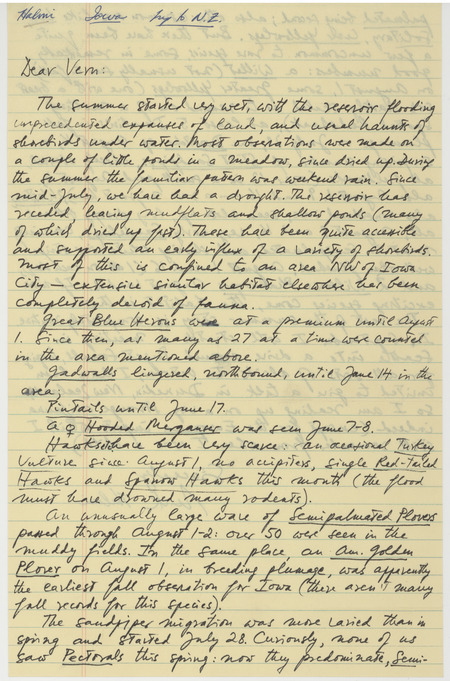 Halmi Iowa
Dear Vern:
The summer started very wet, with the reservoir flooding
unprecedented expanses of land, and usual haunts of
shorebirds under water. Most observations were made on
a couple of little ponds in a meadow, since dried up. During
the summer the familiar pattern was weekend rain. Since
mid-July, we have had a drought. The reservoir has
receded, leaving mudflats and shallow ponds (many
of which dried up fast). These have been quite accessible
and supported an early influx of a variety of shorebirds.
Most of this is confined to an area NW of Iowa
City — extensive similar habitat elsewhere has been
completely devoid of fauna.
Great Blue Herons were at a premium until August
1. Since then, as many as 27 at a time were counted
in the area mentioned above.
Gadwalls lingered, northbound, until June 14 in the
area,
Pintails until June 17.
A ♀ Hooded Merganser was seen June 7-8.
Hawks have been very scarce: an occasional Turkey
Vulture since August 1, no accipiters, single Red-tailed
Hawks and Sparrow Hawks this month (the flood
must have drowned many rodents).
An unusually large wave of Semipalmated Plovers
passed through August 1-2: over 50 were seen in the
muddy fields. In the same place, an Am. Golden
Plover on August 1, in breeding plumage, was apparently
the earliest fall observation for Iowa (there aren't many
fall records for this species).
The sandpiper migration was more varied than in
spring and started July 28. Curiously, none of us
saw Pectorals this spring: now they predominate, Semi-